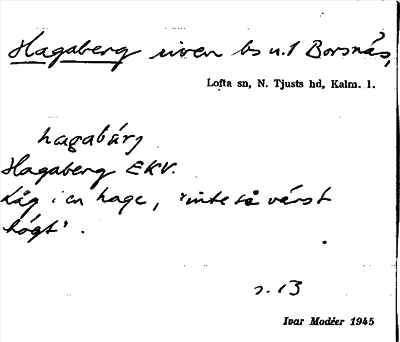 Hagaberg riven bs u. 1 Borsnäs,
Lofta sn, N. Tjusts hd, Kalm. l.
hagabárj
Hagaberg EKV.
Låg i en hage, "inte så värst
högt".
s. 13
Ivar Modéer 1945